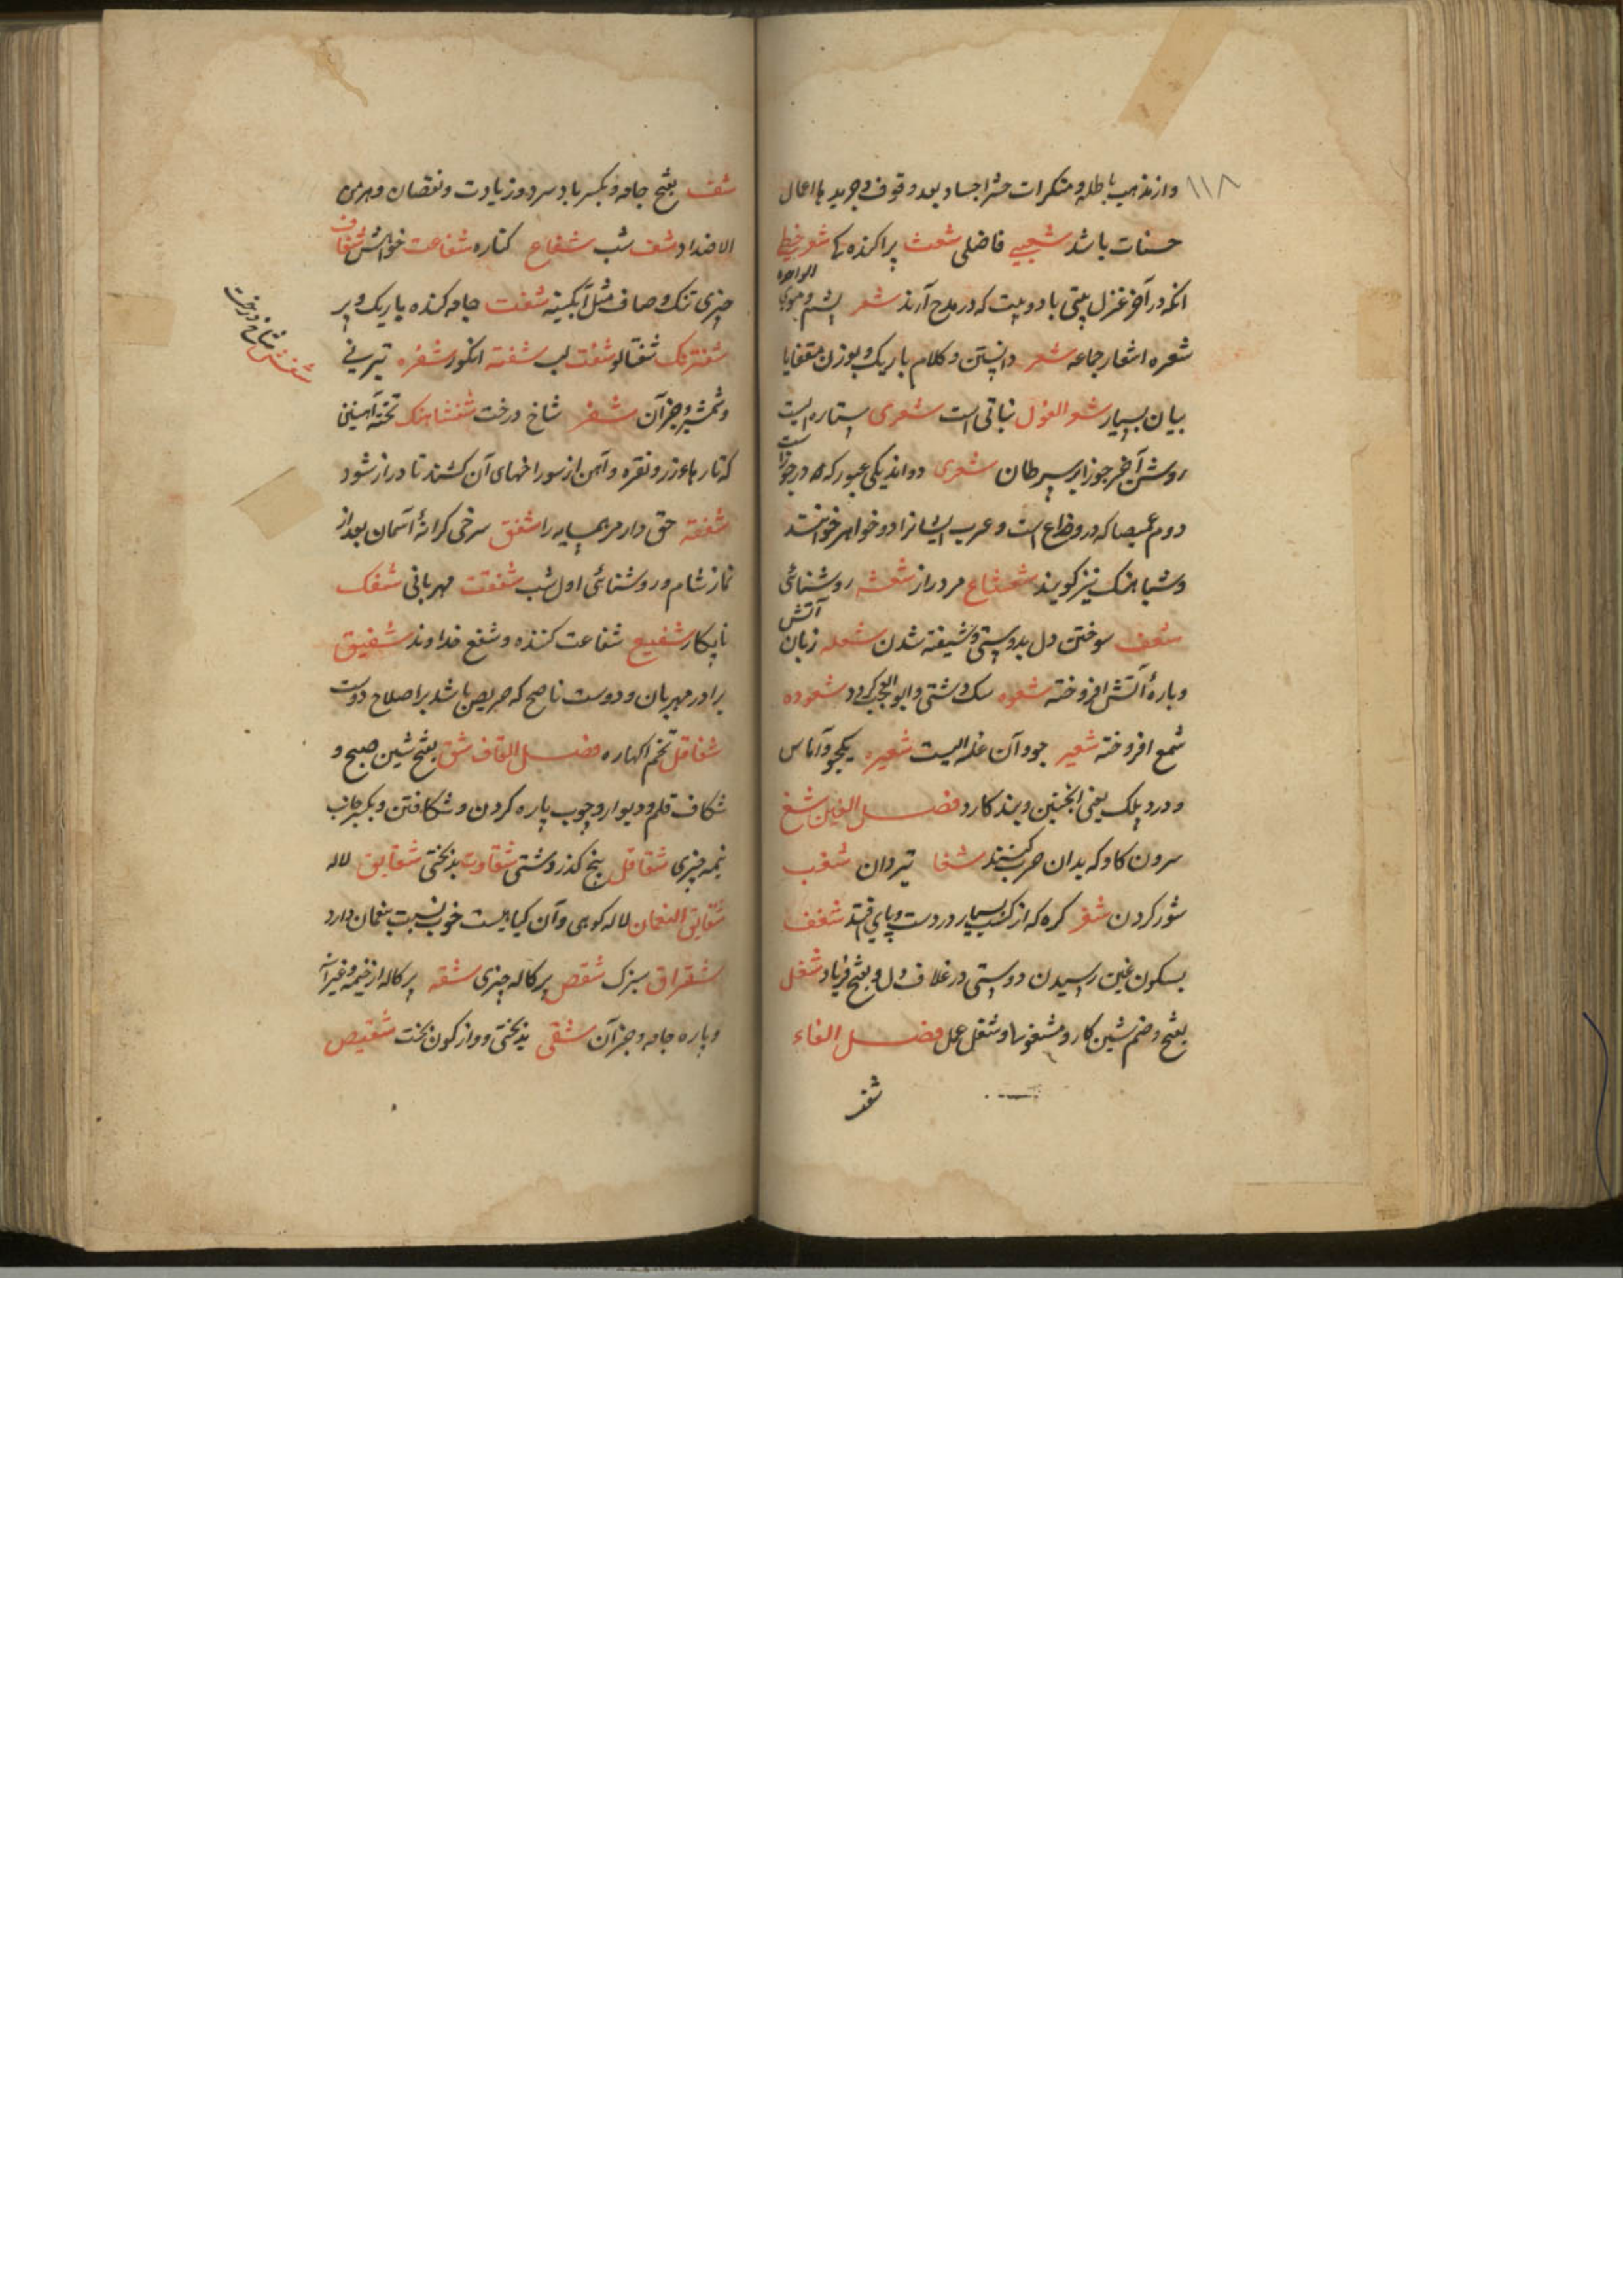 ۱۱۸
و از مذهب باطله و منکرات حشر اجساد بعد وقوف و جرید با اعمال
حسنات باشد شعبیی فاضلی شعث پراکنده شعر خیط
انکه در آخر غزل بیتی یا دو بیت که در مدح آرند شعر پشم و موی الواحده
شعره اشعار جماعه شعر دانستن و کلام باریک و بوزن مقفا با
بیان بسیار شعر الغول نباتی است شعری ستاره ایست
روشن آخر جوزا بر سرطان شعری دو اند یکی عبور که در جوزا است
دوم غمیصا که در ذراع است و عرب ایشانرا دو خواهر خوانند
و شباهنک نیز کویند شعشاع مرد دراز شعشعه روشنائی
شعف سوختن دل بدوستی و شیفته شدن شعله زبان آتش
و پارهٔ آتش افروخته شعوه سک و شتی و ابو العجب کردد شعوذه
شمع افروخته شعیر جو و آن غله ایست شعیره یکجو و آماس
و درد پلک یعنی انجنین و بند کارد فصل الغین شغ
سرون کاو که بدان حرب کنند شغا تیردان شغب
شور کردن شغر کره که از کسب بسیار در دست و پای افتد شغف
بسکون غین رسیدن دوستی در غلاف دل و بفتح فریاد شغل
بفتح و ضم شین کار و مشغول و شغل عمل فصل الفاء
شف
شف بفتح جامه و بکسر باد سرد و زیادت و نقصان و هر من
الاضداد شف شب شفاع کناره شفاعت خواهش شفاف
چیزی تنک و صاف مثل آبکینه شفت جامه کنده باریک و پر
شفترنک شفتالو شفت لب شفته انکور شفره تیزنی
و شمشیر و جز آن شفر شاخ درخت شفشاهنک تخته آهنین
که تارهاء زر و نقره و آهن از سوراخهای آن کشند تا دراز شود
شفعه حق دار مر همسایه را شفق سرخی کرانهٔ آسمان بعد از
نماز شام و روشنائی اول شب شفقت مهربانی شفک
نابکار شفیع شفاعت کننده و شفع خداوند شفیق
برادر مهربان و دوست ناصح که حریص باشد بر اصلاح دوست
شفاقل تخم اکهاره فصل القاف شق بفتح شین صبح و
شکاف قلم و دیوار و چوب پاره کردن و شکافتن و بکسر جانب
نیمه چیزی شقاقل بیخ کذر دشتی شقاوت بدبختی شقایق لاله
شقایق النعمان لاله کوهی و آن کیاهیست خوب نسبت بنعمان دارد
شقراق سبزک شقص پرکاله چیزی شقه پرکاله از خیمه و غیر آن
و پاره جامه و جز آن شقی بدبختی و واژکون بخت شقیص
شفش شاخ درخت